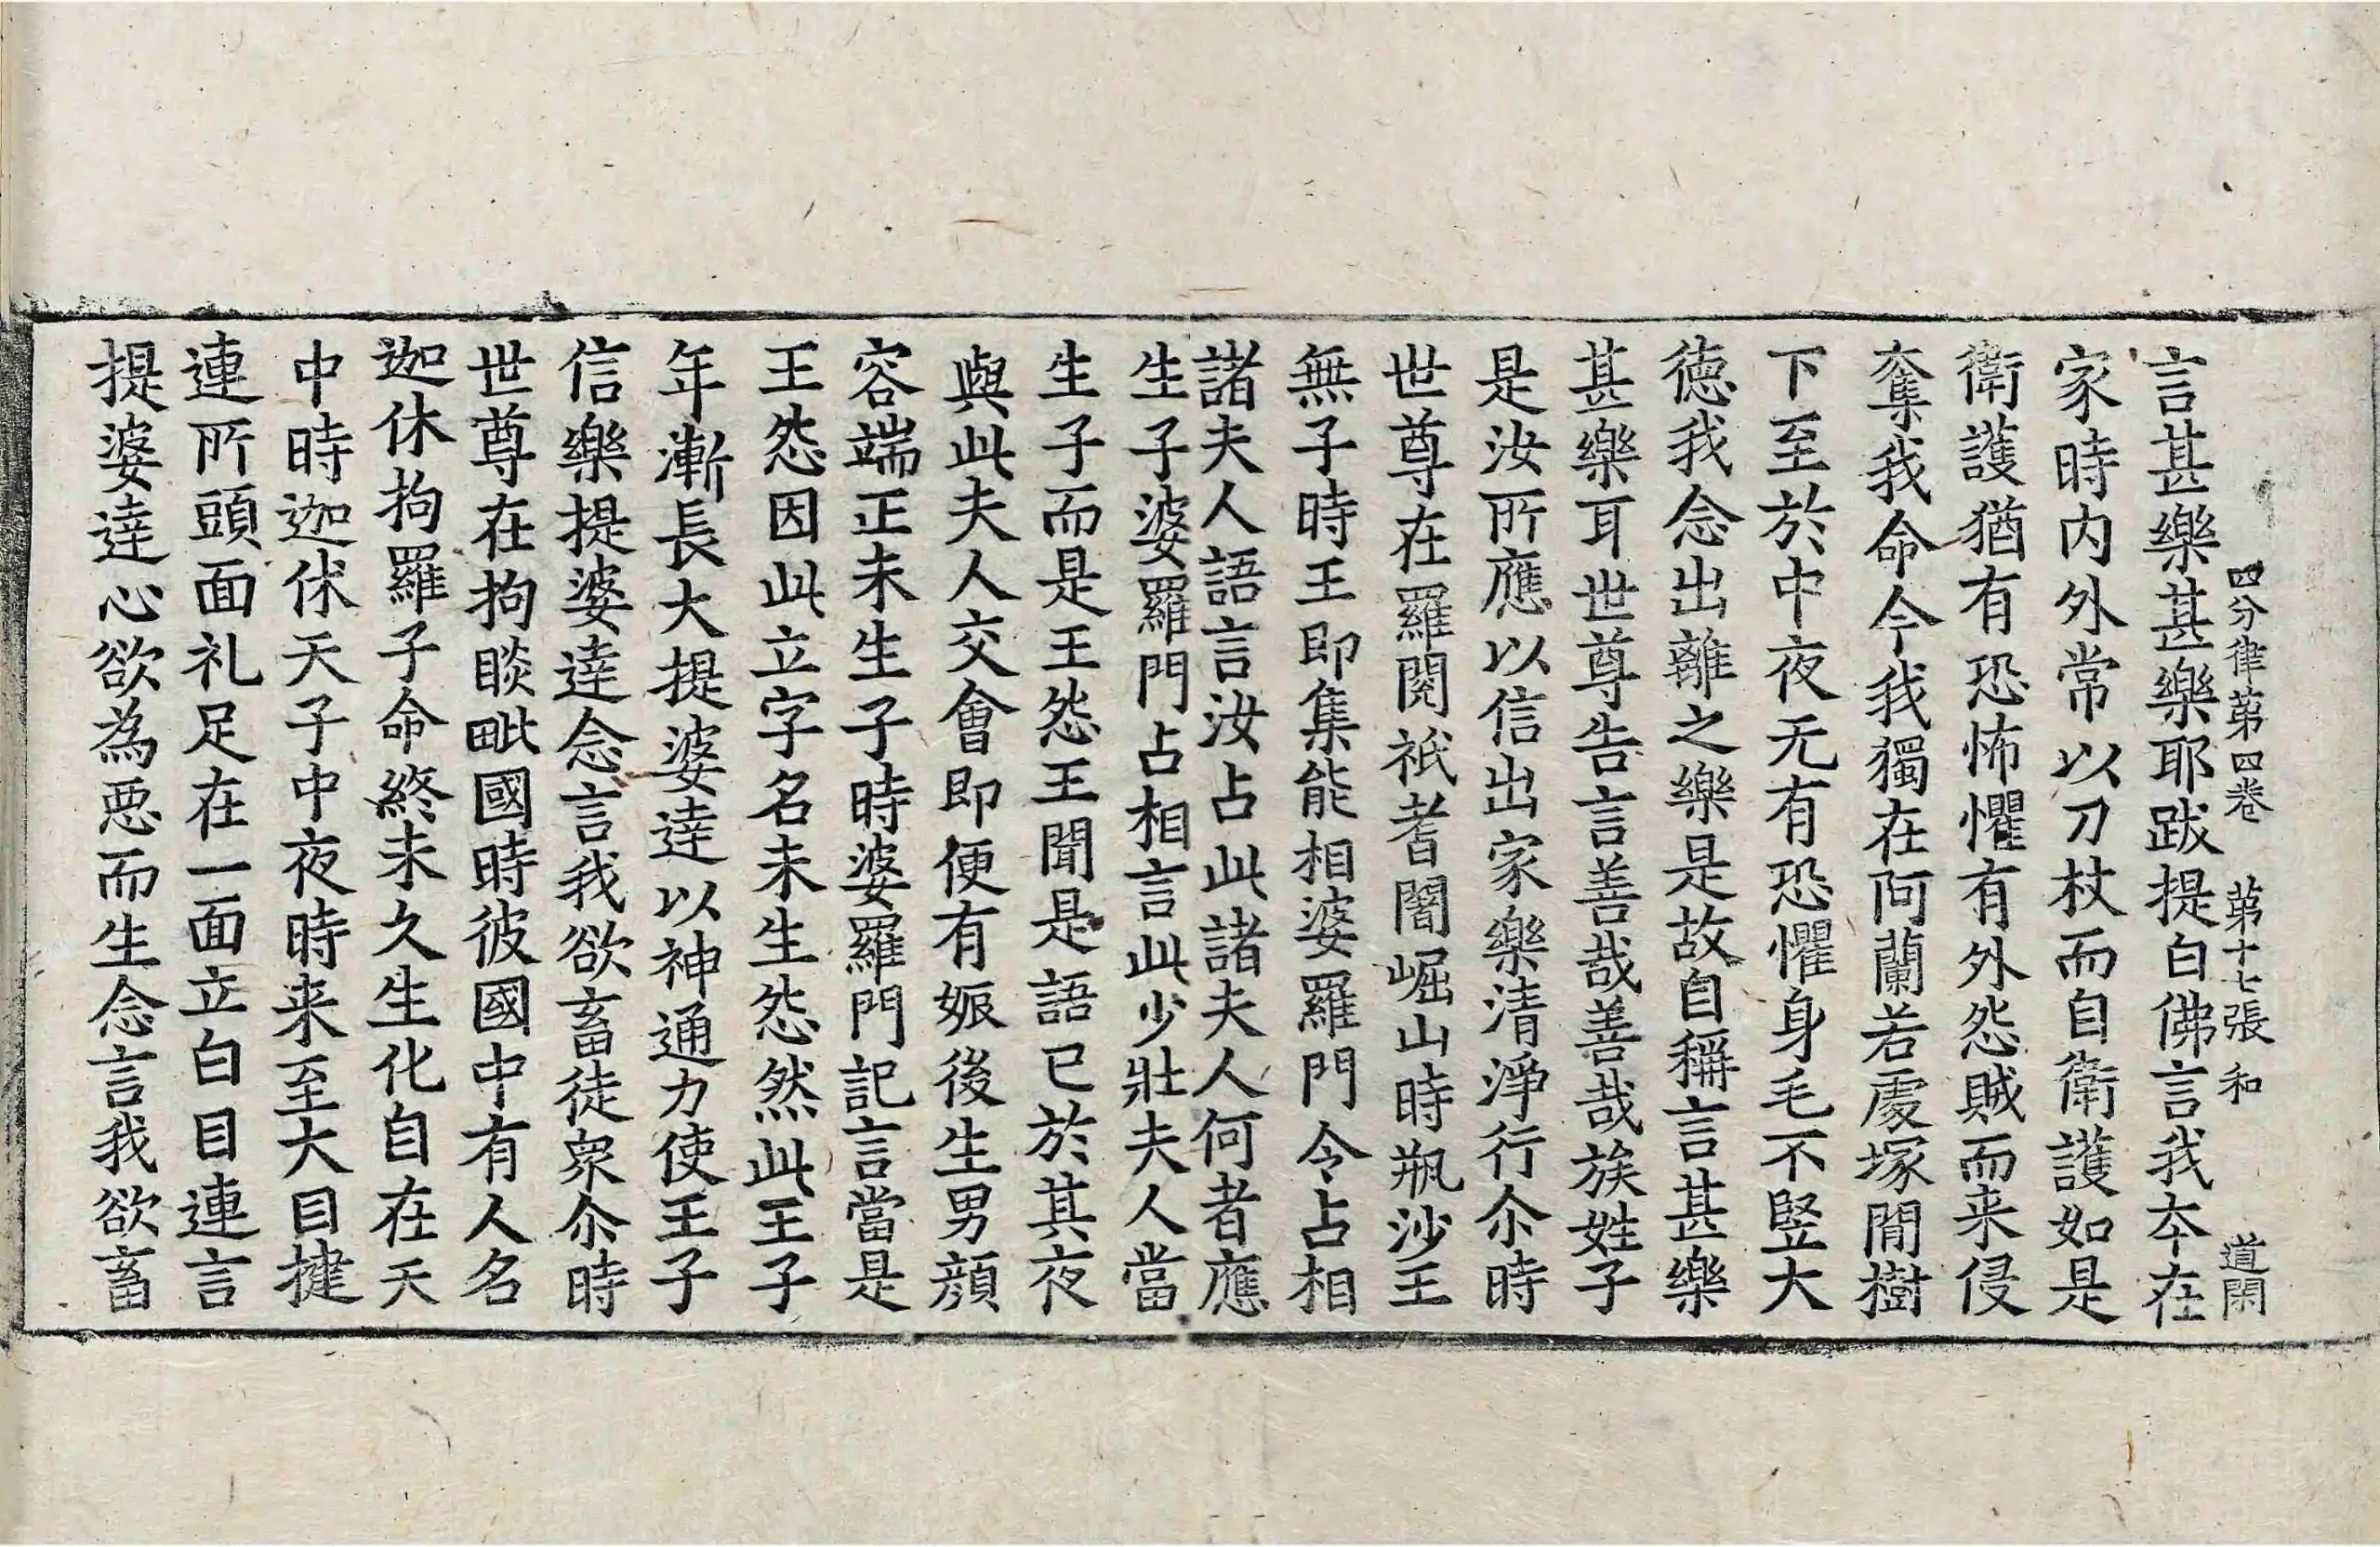 四分律苐四卷 苐十七張 和 道閑
言甚樂甚樂耶跋提白佛言我夲在
家時内外常以刀杖而自衛護如是
衛護猶有恐怖懼有外怨賊而来侵
奪我命今我獨在阿蘭若處塚間樹
下至於中夜无有恐懼身毛不竪大
徳我念出離之樂是故自稱言甚樂
甚樂耳世尊告言善哉善哉族姓子
是汝所應以信出家樂清淨行尒時
世尊在羅閱祇耆闍崛山時瓶沙王
無子時王即集能相婆羅門令占相
諸夫人語言汝占此諸夫人何者應
生子婆羅門占相言此少壯夫人當
生子而是王怨王聞是語已於其夜
與此夫人交會即便有娠後生男顔
容端正未生子時婆羅門記言當是
王怨因此立字名未生怨然此王子
年漸長大提婆達以神通力使王子
信樂提婆達念言我欲畜徒衆尒時
世尊在拘睒毗國時彼國中有人名
迦休拘羅子命終未久生化自在天
中時迦休天子中夜時来至大目揵
連所頭面礼足在一面立白目連言
提婆達心欲為惡而生念言我欲畜